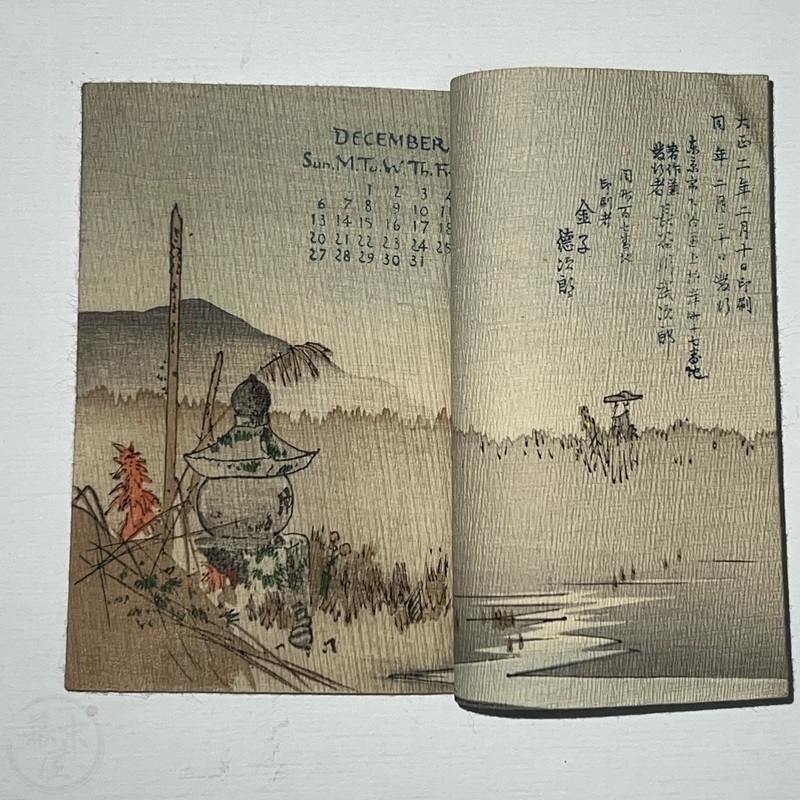 DECEMBER
Sun. M. Tu. W. Th. F
1 2 3 4
6 7 8 9 10 11
13 14 15 16 17 18
20 21 22 23 24 25
27 28 29 30 31
大正二年二月十日印刷
同年二月二十日發行
東京市下谷區上根岸町十七番地
著作兼發行者 長谷川武次郎
番地
印刷者
金子徳次郎